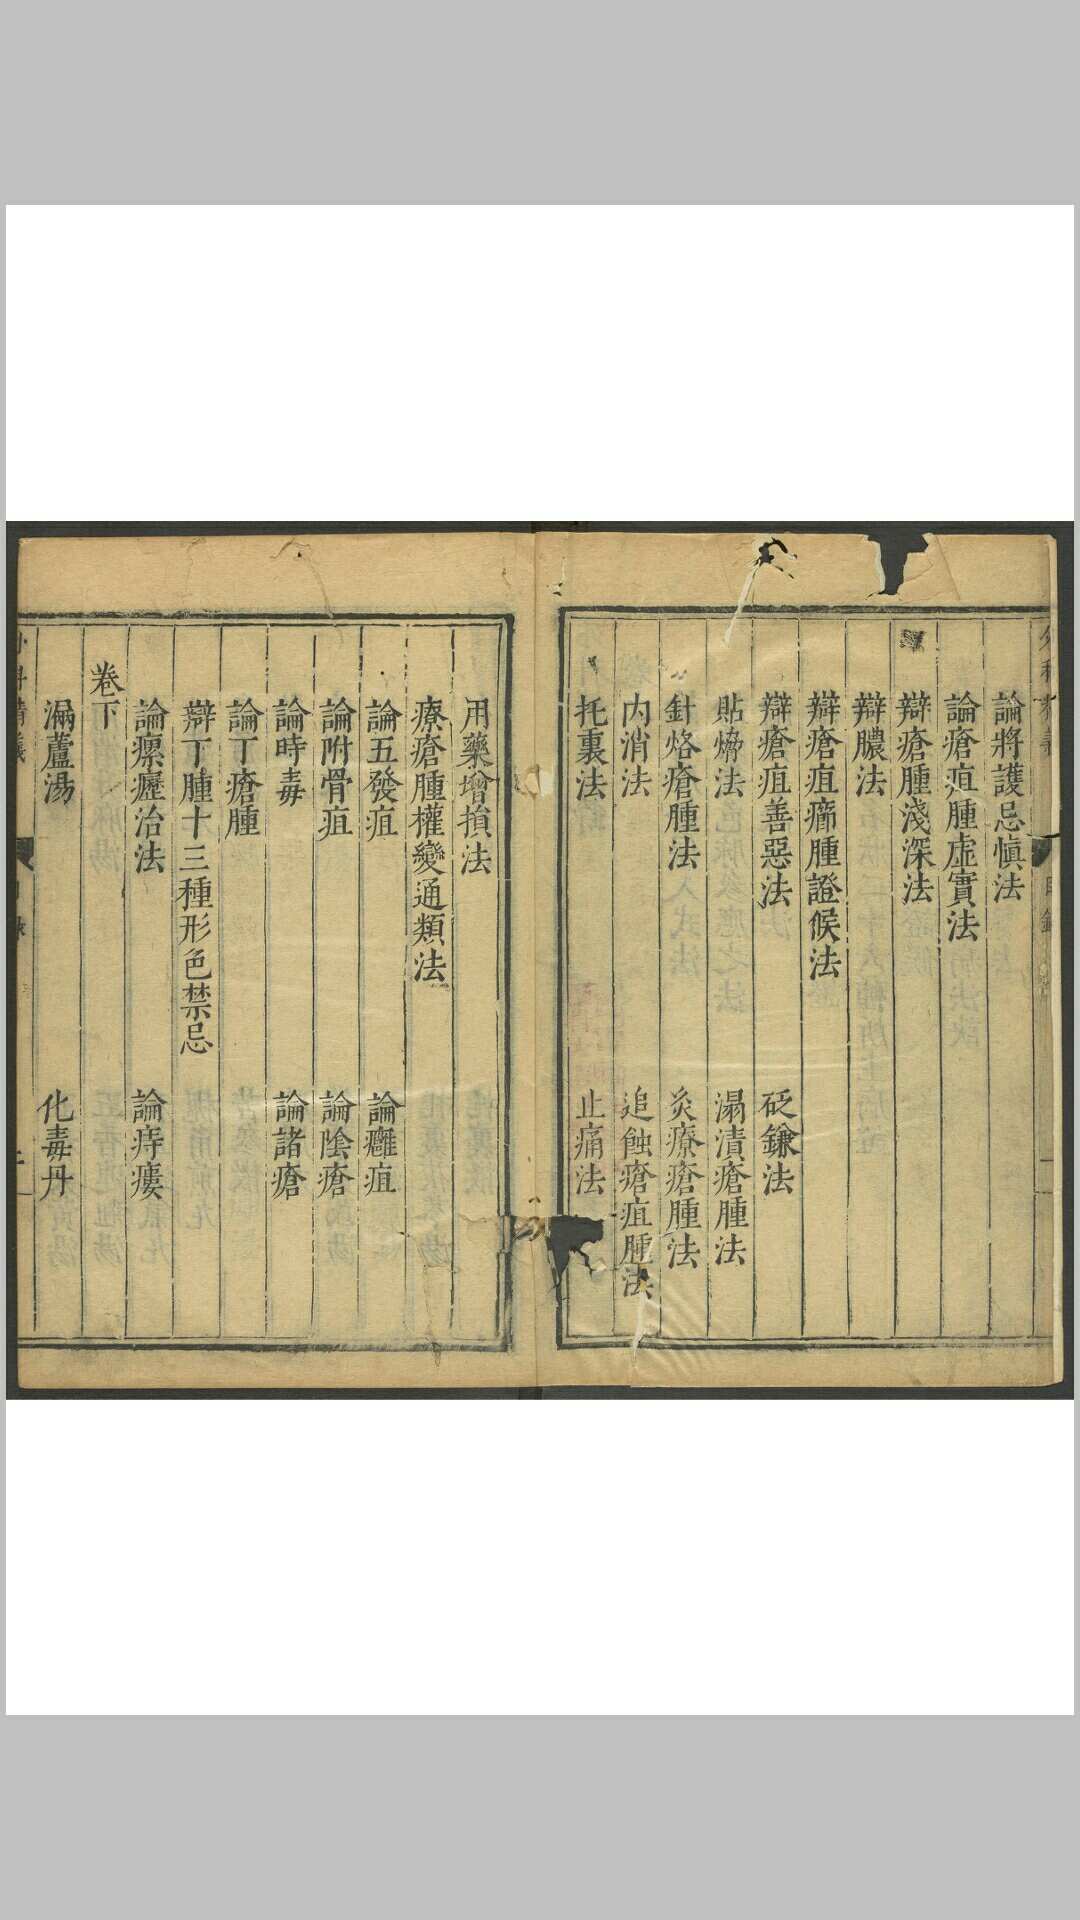 論將護忌慎法
論瘡疽腫虛實法
辯瘡腫淺深法
辯膿法
辯瘡疽癤腫證候法
辯瘡疽善惡法　砭鎌法
貼熁法　溻漬瘡腫法
針烙瘡腫法　灸療瘡腫法
内消法　追蝕瘡疽腫法
托裏法　止痛法
用藥增損法
療瘡腫權變通類法
論五發疽　論癰疽
論附骨疽　論陰瘡
論時毒　論諸瘡
論丁瘡腫
辯丁腫十三種形色禁忌
論瘰癧治法　論痔瘻
卷下
漏蘆湯　化毒丹